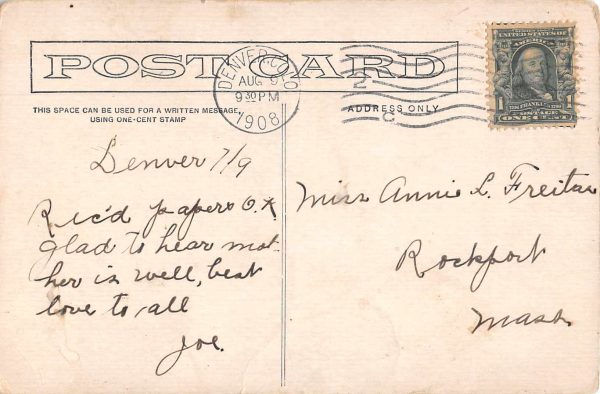 POST CARD
DENVER, COLO
AUG 9
9 30 PM
1908
2
C
UNITED STATES OF
AMERICA
1
1
FRANKLIN
POSTAGE
ONE CENT
THIS SPACE CAN BE USED FOR A WRITTEN MESSAGE,
USING ONE-CENT STAMP
ADDRESS ONLY
Denver 7/9
Rec'd papers O.K
glad to hear mot
her is well, best
love to all
Joe.
Miss Annie L. Freitas
Rockport
Mass